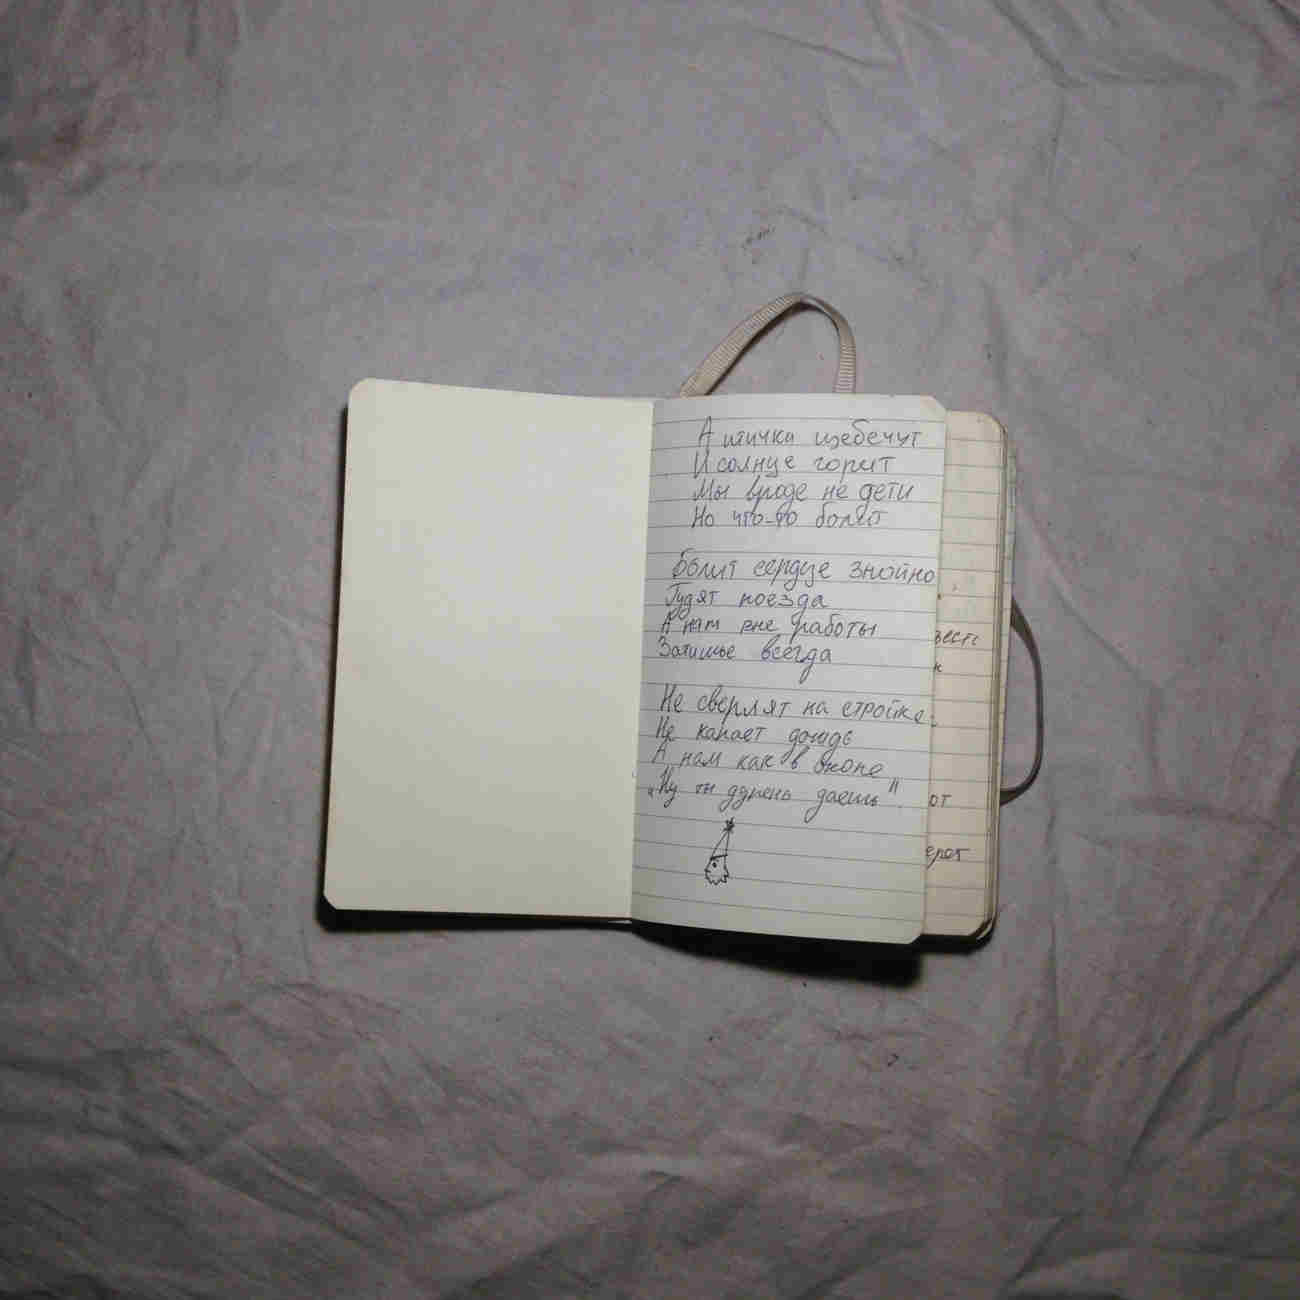 А птички щебечут
И солнце горит
Мы вроде не дети
Но что-то болит
Болит сердце знойно
Гудят поезда
А нам вне работы
Затишье всегда
Не сверлят на стройке
Не капает дождь
А нам как в окопе
„Ну ты дурень даешь"